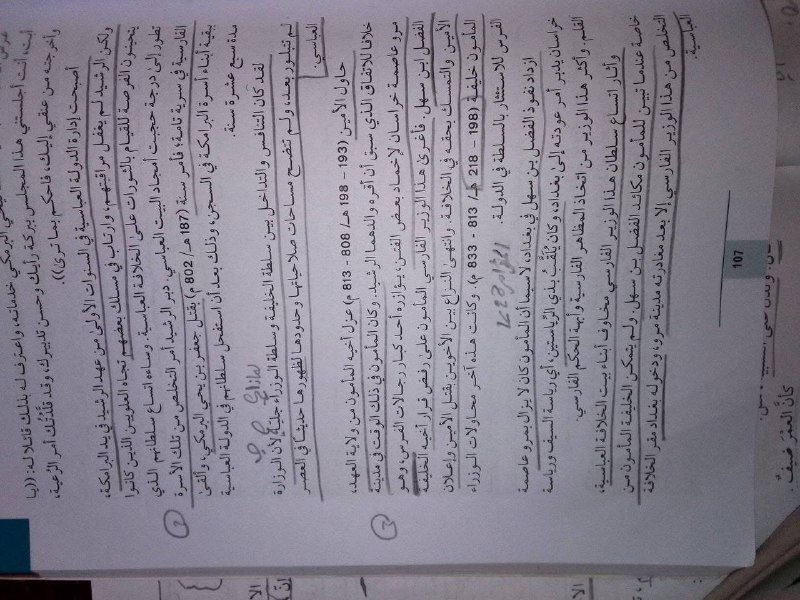 يحيى البرمكي خدماته، واعترف له بذلك قائلا له: ((يا
أبت، أنت أجلستني هذا المجلس ببركة رأيك وحسن تدبيرك، وقد قلدتك أمر الرعية،
وأخرجته من عنقي إليك، فاحكم بما ترى)).
أصبحت إدارة الدولة العباسية في السنوات الأولى من عهد الرشيد في يد البرامكة،
ولكن الرشيد لم يغفل مراقبتهم، وارتاب في مسلك بعضهم تجاه العلويين الذين كانوا
يتحينون الفرصة للقيام بالثورات على الخلافة العباسية. وساءه اتساع سلطانهم الذي
تطور إلى درجة حجبت أمجاد البيت العباسي. دبر الرشيد أمر التخلص من تلك الأسرة
الفارسية في سرية تامة، فأمر سنة (187هـ/ 802 م) بقتل جعفر بن يحيى البرمكي، وألقى
بقية أبناء أسرة البرامكة في السجن، وذلك بعد أن استفحل سلطانهم في الدولة العباسية
مدة سبع عشرة سنة.
لقد كان التنافس والتداخل بين سلطة الخليفة وسلطة الوزراء جليا لأن الوزارة
لم تتبلور بعد، ولم تتضح مساحات صلاحياتها وحدودها لظهورها حديثا في العصر
العباسي.
حاول الأمين (193 - 198 هـ/ 808 - 813 م) عزل أخيه المأمون من ولاية العهد،
خلافا للاتفاق الذي سبق أن أقره والدهما الرشيد. وكان المأمون في ذلك الوقت في مدينة
مرو عاصمة خراسان لإخماد بعض الفتن، يؤازره أحد كبار رجالات الفرس، وهو
الفضل ابن سهل. فأغرى هذا الوزير الفارسي المأمون على رفض قرار أخيه الخليفة
الأمين والتمسك بحقه في الخلافة. وانتهى النزاع بين الأخوين بقتل الأمين وإعلان
المأمون خليفة (198 - 218 هـ/ 813 - 833 م). وكانت هذه آخر محاولات الوزراء
الفرس للاستئثار بالسلطة في الدولة.
ازداد نفوذ الفضل بن سهل في بغداد، لا سيما أن المأمون كان لا يزال بمرو عاصمة
خراسان يدبر أمر عودته إلى بغداد، وكان يُلَقَّبُ بذي الرياستين، أي رياسة السيف ورياسة
القلم. وأكثر هذا الوزير من اتخاذ المظاهر الفارسية وأبهة الحكم الفارسي.
وأثار اتساع سلطان هذا الوزير الفارسي مخاوف أبناء بيت الخلافة العباسية،
خاصة عندما تبين للمأمون مكائد الفضل بن سهل. ولم يتمكن الخليفة المأمون من
التخلص من هذا الوزير الفارسي إلا بعد مغادرته مدينة مرو، ودخوله بغداد مقر الخلافة
العباسية.
107
كأنَّ العقدَ ضيفٌ.